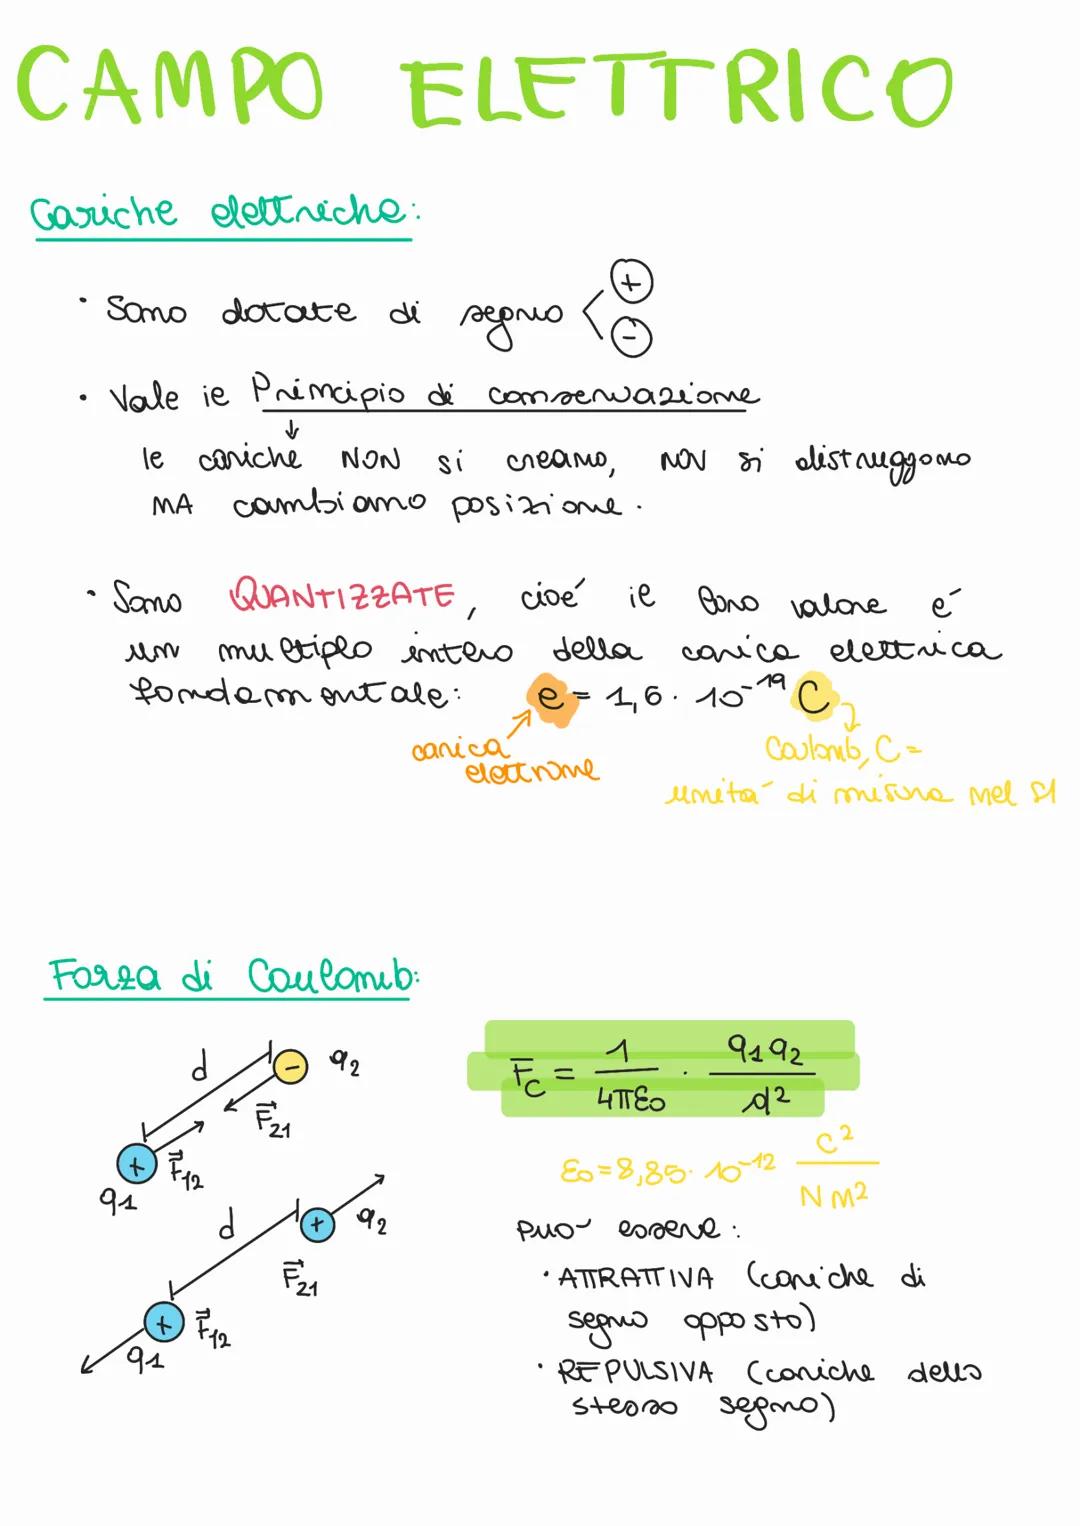 CAMPO ELETTRICO
Cariche elettriche:
• Sono dotate di segno < + -
• Vale il Principio di conservazione
↓
le cariche NON si creano, NON si distruggono
MA cambiano posizione.
• Sono QUANTIZZATE, cioé il loro valore é
un multiplo intero della carica elettrica
fondamentale: e = 1,6 · 10⁻¹⁹ C
carica
elettrone
Coulomb, C =
unitá di misura nel SI
Forza di Coulomb:
d
- q₂
F⃗₂₁
+ F⃗₁₂
q₁
d
+ q₂
F⃗₂₁
+ F⃗₁₂
q₁
F̅c = 1/4πε₀ · q₁q₂/d²
ε₀ = 8,85 · 10⁻¹² C²/Nm²
può essere:
• ATTRATTIVA (cariche di
segno opposto)
• REPULSIVA (cariche dello
stesso segno)